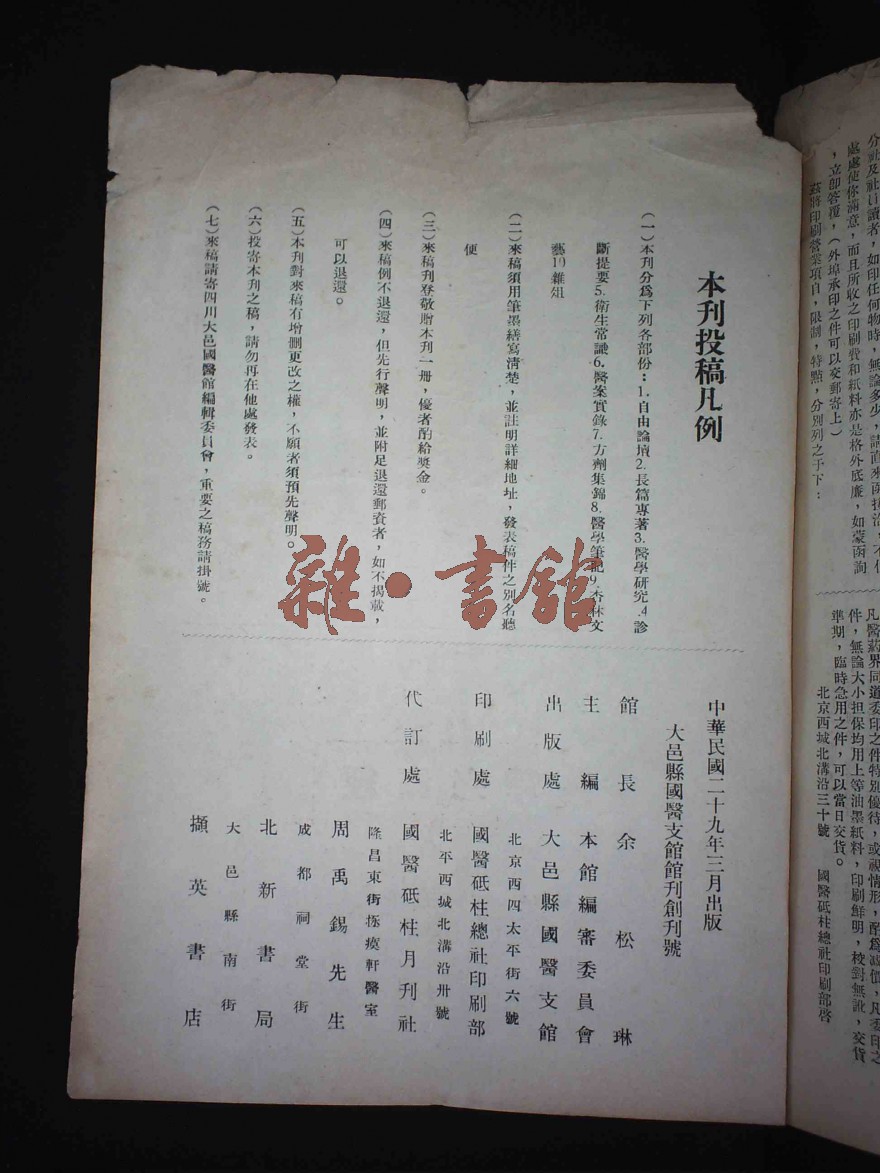 本刊投稿凡例
(一)本刊分爲下列各部份：1.自由論壇2.長篇專著3.醫學研究.4診
斷提要5.衛生常識6.醫案實錄7.方劑集錦8.醫學筆記9.杏林文
藝10雜俎
(二)來稿須用筆墨繕寫清楚，並註明詳細地址，發表稿件之別名聽
便
(三)來稿刊登敬贈本刊一册，優者酌給獎金。
(四)來稿例不退還，但先行聲明，並附足退還郵資者，如不揭載，
可以退還。
(五)本刊對來稿有增删更改之權，不願者須預先聲明。
(六)投寄本刊之稿，請勿再在他處發表。
(七)來稿請寄四川大邑國醫館編輯委員會，重要之稿務請掛號。
中華民國二十九年三月出版
大邑縣國醫支館館刊創刊號
館長 余松琳
主編 本館編審委員會
出版處 大邑縣國醫支館
北京西四太平街六號
印刷處 國醫砥柱總社印刷部
北平西城北溝沿卅號
代訂處 國醫砥柱月刊社
隆昌東街拯瘼軒醫室
周禹錫先生
成都祠堂街
北新書局
大邑縣南街
擷英書店
雜·書館
分社及社員讀者，如印任何物時，無論多少，請直來函接洽，不但
處處使你滿意，而且所收之印刷費和紙料亦是格外底廉，如蒙函詢
，立卽答覆，(外埠承印之件可以交郵寄上)
茲將印刷營業項目，限制，特點，分別列之于下：
凡醫葯界同道委印之件特別優待，或視情形，酌爲減價，凡委印之
件，無論大小担保均用上等油墨紙料，印刷鮮明，校對無訛，交貨
準期，臨時急用之件，可以當日交貨。
北京西城北溝沿三十號 國醫砥柱總社印刷部啓